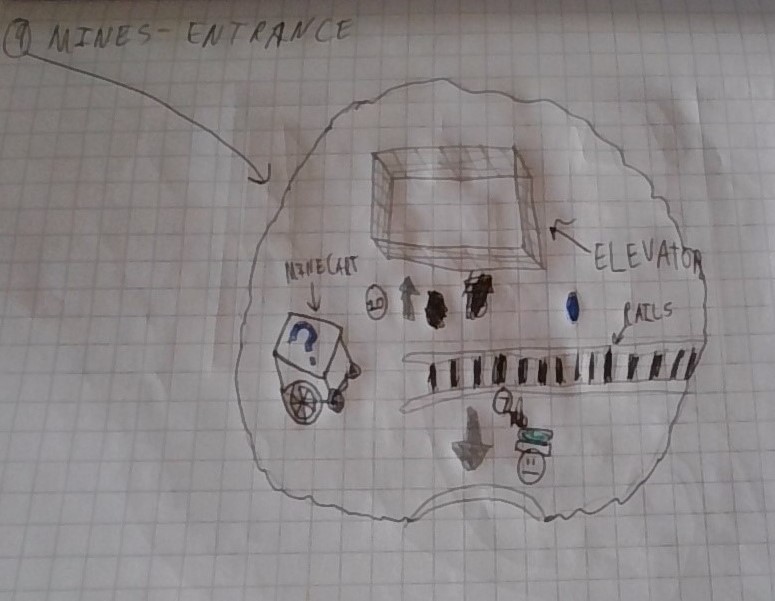 9 MINES - ENTRANCE
ELEVATOR
MINECART
RAILS
?